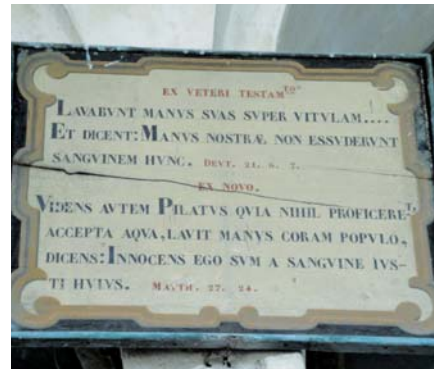 EX VETERI TESTAM.TO
LAVABVNT MANVS SVAS SVPER VITVLAM....
ET DICENT: MANVS NOSTRÆ NON ESSVDERVNT
SANGVINEM HVNC. DEVT. 21. 6. 7.
EX NOVO.
VIDENS AVTEM PILATVS QVIA NIHIL PROFICERET,
ACCEPTA AQVA, LAVIT MANVS CORAM POPVLO,
DICENS: INNOCENS EGO SVM A SANGVINE IVS-
TI HVIVS. MATTH. 27. 24.